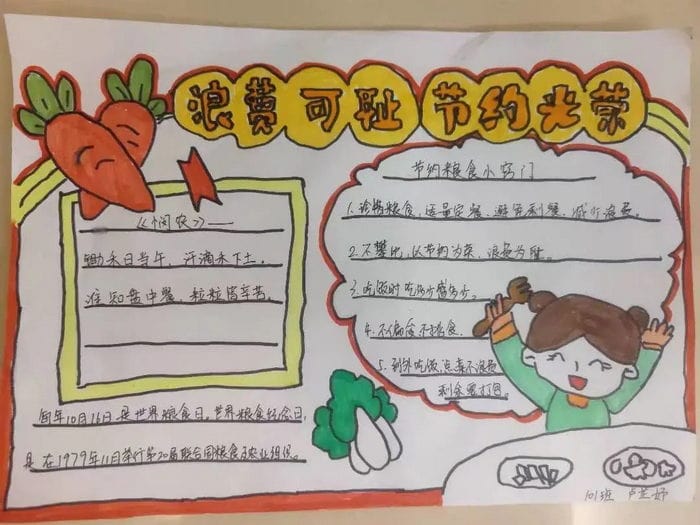 浪费可耻 节约光荣
《悯农》
锄禾日当午，汗滴禾下土。
谁知盘中餐，粒粒皆辛苦。
节约粮食小窍门
1. 珍惜粮食，适量定餐、避免剩餐、减少浪费。
2. 不攀比，以节约为荣、浪费为耻。
3. 吃饭时吃多少盛多少。
4. 不偏食不挑食。
5. 到外吃饭点菜不浪费
剩余要打包。
每年10月16日是世界粮食日。世界粮食纪念日，
是在1979年11月举行第20届联合国粮食及农业组织。
101班 卢芷妤